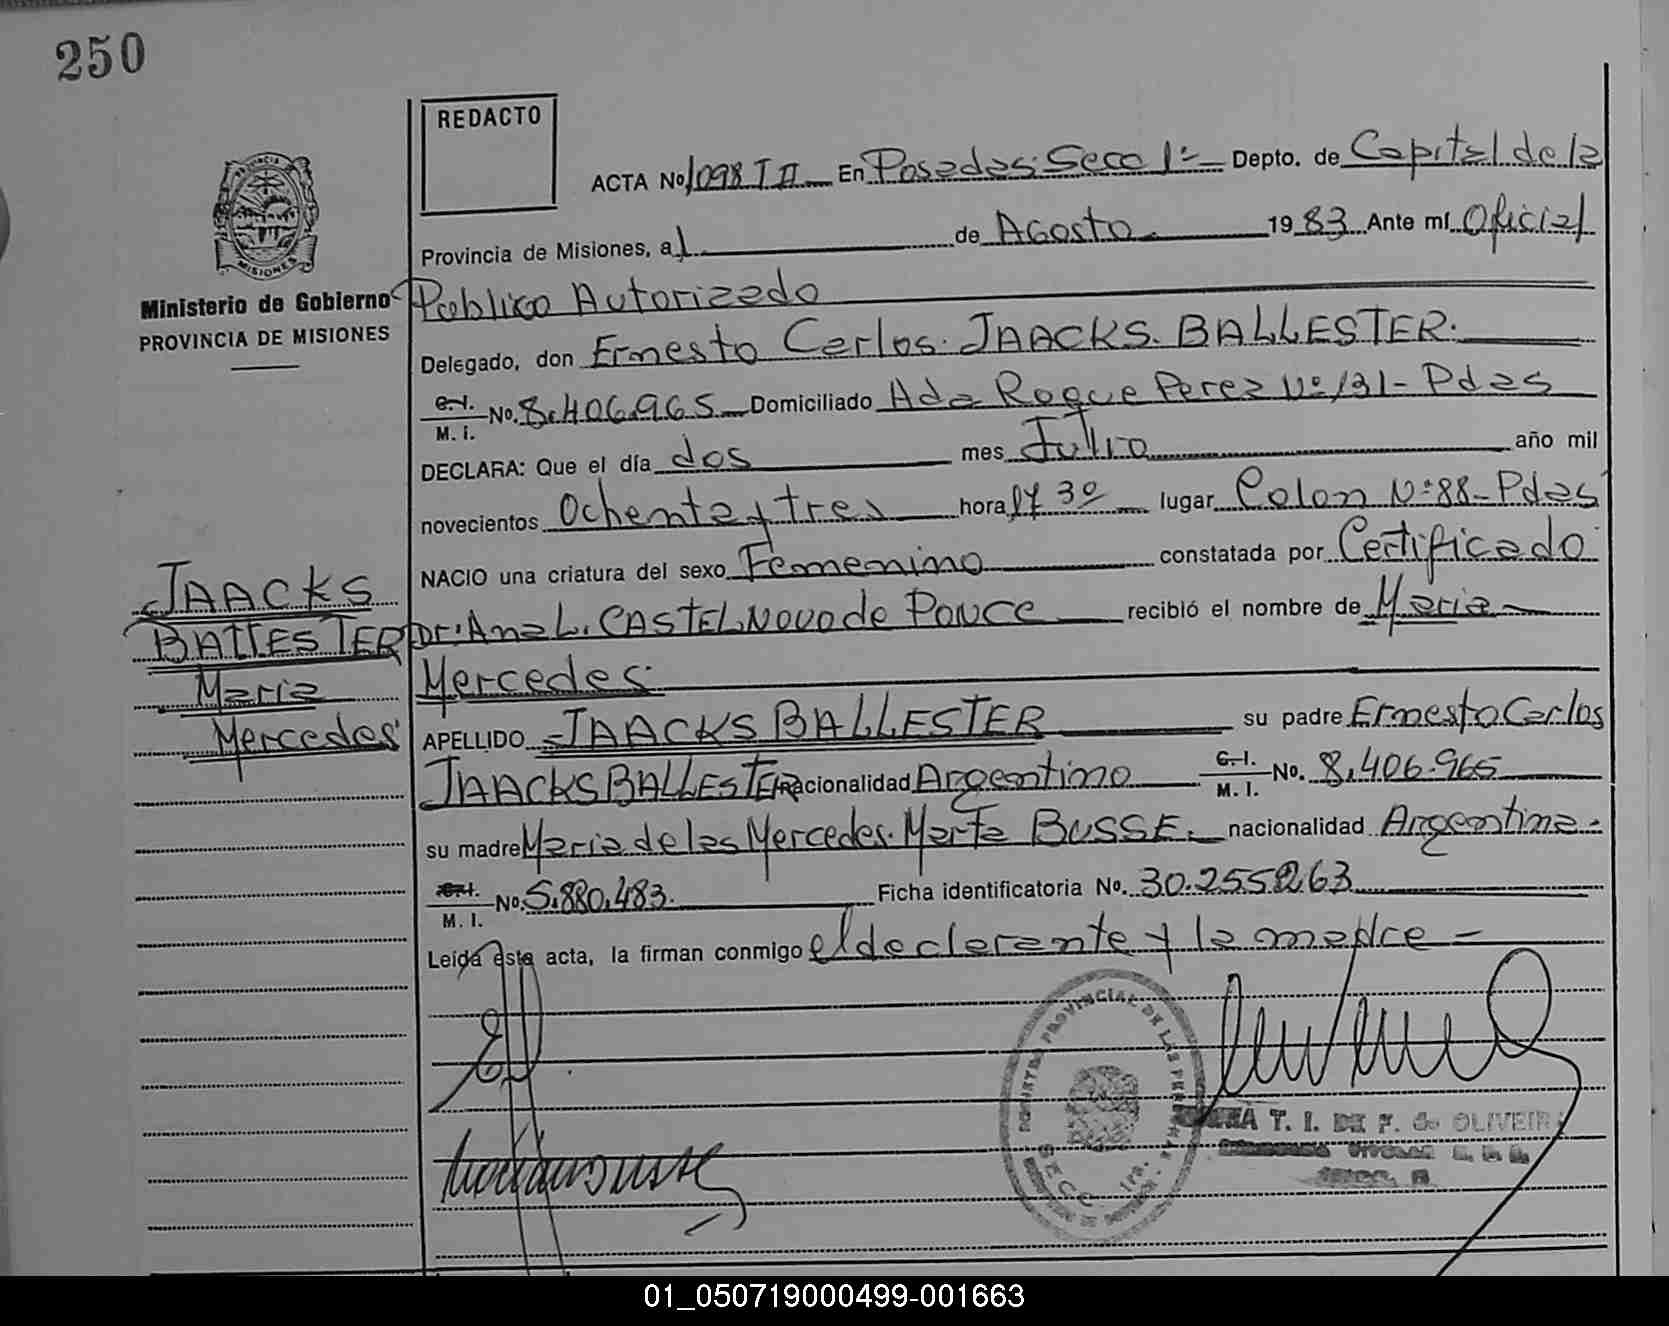 250
REDACTO
ACTA No 1098 T II En Posadas Secc 1ª Depto. de Capital de la
Provincia de Misiones, a 1 de Agosto 1983 Ante mí Oficial
Público Autorizado
MISIONES
Ministerio de Gobierno
PROVINCIA DE MISIONES
Delegado, don Ernesto Carlos JAACKS BALLESTER
C.I. M. I. No. 8.406.965 Domiciliado Avda Roque Perez Nº 131 - Pdas
DECLARA: Que el día dos mes Julio año mil
novecientos Ochenta y tres hora 17 30 lugar Colon Nº 88 - Pdas
NACIO una criatura del sexo Femenino constatada por Certificado
Drª Ana L. CASTELNOVO de PONCE recibió el nombre de Maria
Mercedes
APELLIDO JAACKS BALLESTER su padre Ernesto Carlos
JAACKS BALLESTER nacionalidad Argentino C.I. M. I. No. 8.406.965
su madre Maria de las Mercedes Marta BUSSE nacionalidad Argentina
C.I. M. I. No. 5.880.483 Ficha identificatoria No. 30.255.263
Leída esta acta, la firman conmigo el declarante y la madre
JAACKS
BALLESTER
Maria
Mercedes
PROVINCIAL DE LAS PERSONAS
SECC. 1ra.
T. I. DE F. de OLIVEIRA
01_050719000499-001663